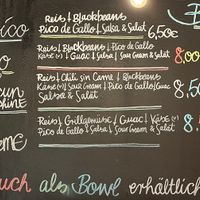 Reis ↓ Blackbeans
ico Pico de Gallo ↓ Salsa & Salat 6,50€
Reis ↓ Blackbeans ↓ Pico de Gallo
Käse (v) ↓ Guac ↓ Salsa ↓ Sour Cream & Salat 8,00
o
Reis ↓ Chili sin Carne ↓ Blackbeans
cun Käse (v) ↓ Sour Cream ↓ Pico de Gallo ↓ Guac 8,5
Salsa & Salat
Reis ↓ Grillgemüse ↓ Guac ↓ Käse (v)
eme Pico de Gallo ↓ Salsa ↓ Sour Cream & Salat 8,5
uch als Bowl erhältlic